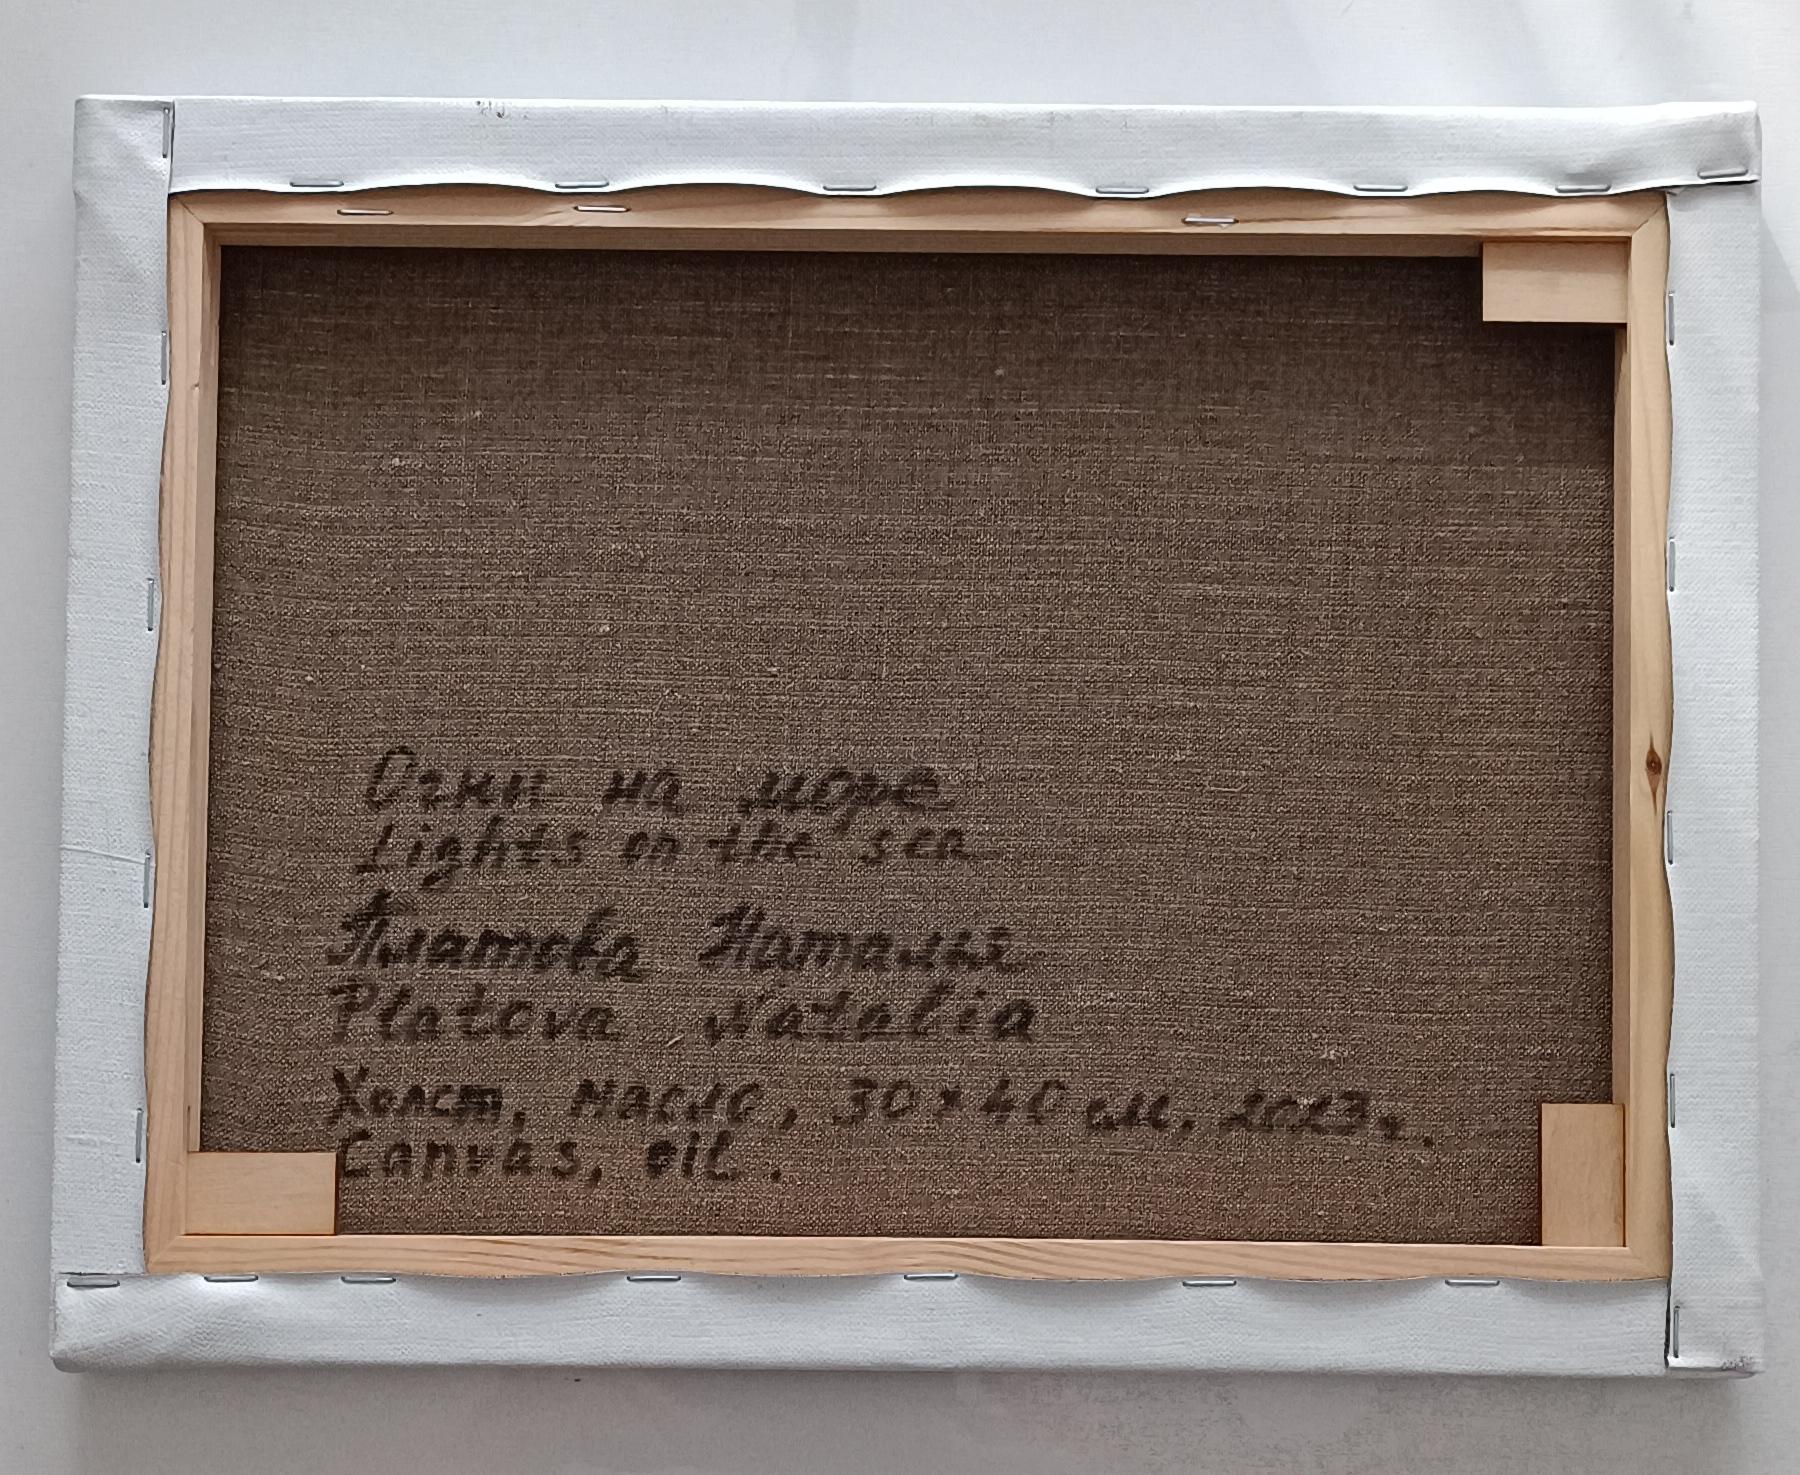 Огни на море
Lights on the sea
Платова Наталья
Platova Natalia
Холст, масло, 30×40 см, 2023г.
Canvas, oil.